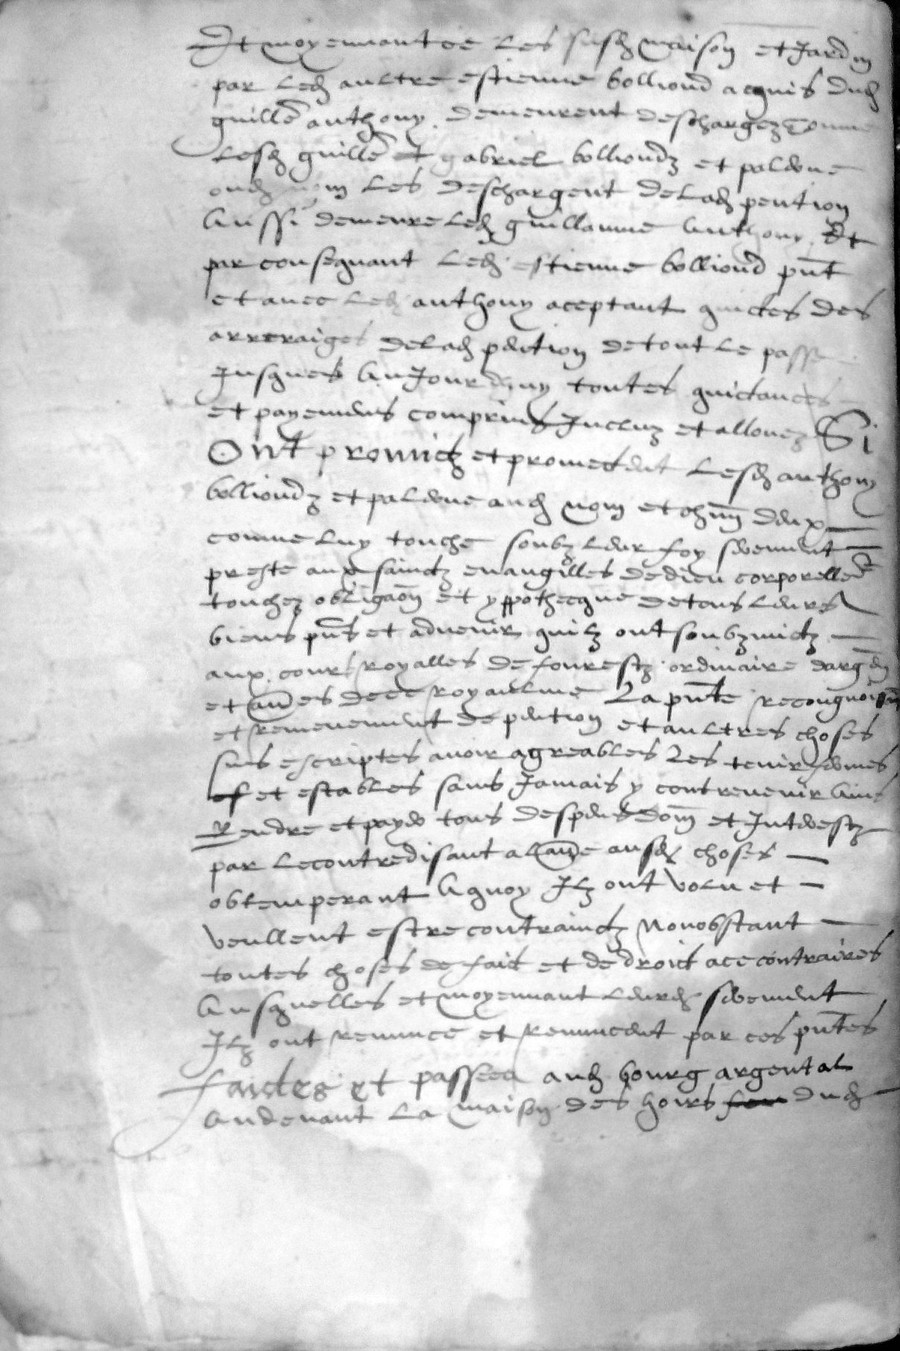 Et moyennant ce les susd maison et Jardin
par led aultre estienne bolliond acquis dud
guille anthony demeurent deschargez comme
lesd guille et gabriel bolliondz et palerne
oud nom les deschargent de lad pention
Aussi demeure led guillaume Anthony Et
par consequant led estienne bolliond pnt
et avec led anthony aceptant quictes des
arreraiges de lad pention de tout le passe
Jusques AuJourdhuy toutes quictances
et payemens comprins Incluz et allouez Si
Ont promictz et promectent lesd anthony
bolliondz et palerne aud nom et chun deux
comme luy touche soubz leur foy serement
preste aux sainctz evangilles de dieu corporellet
touchez obligaon et yppothecque de tous leurs
biens pnts et advenir quilz ont soubzmictz
aux cours royalles de fourestz ordinaire darg
et aues de ce royaulme La pnte recongnoi
et remenement de pention et aultres choses
sus escriptes avoir agreables les tenir fermes
et estables sans Jamais y contrevenir Ains
Rendre et payer tous despens dom et Interestz
par le contredisant a laue ausd choses
obtemperant A quoy Ilz ont volu et
veullent estre contrainctz Nonobstant
toutes choses de faict et de droict a ce contraires
Ausquelles et moyennant leurd serement
Ilz ont renunce et renuncent par ces pntes
faictes et passees aud bourg argental
Au devant la maison des hoirs dud